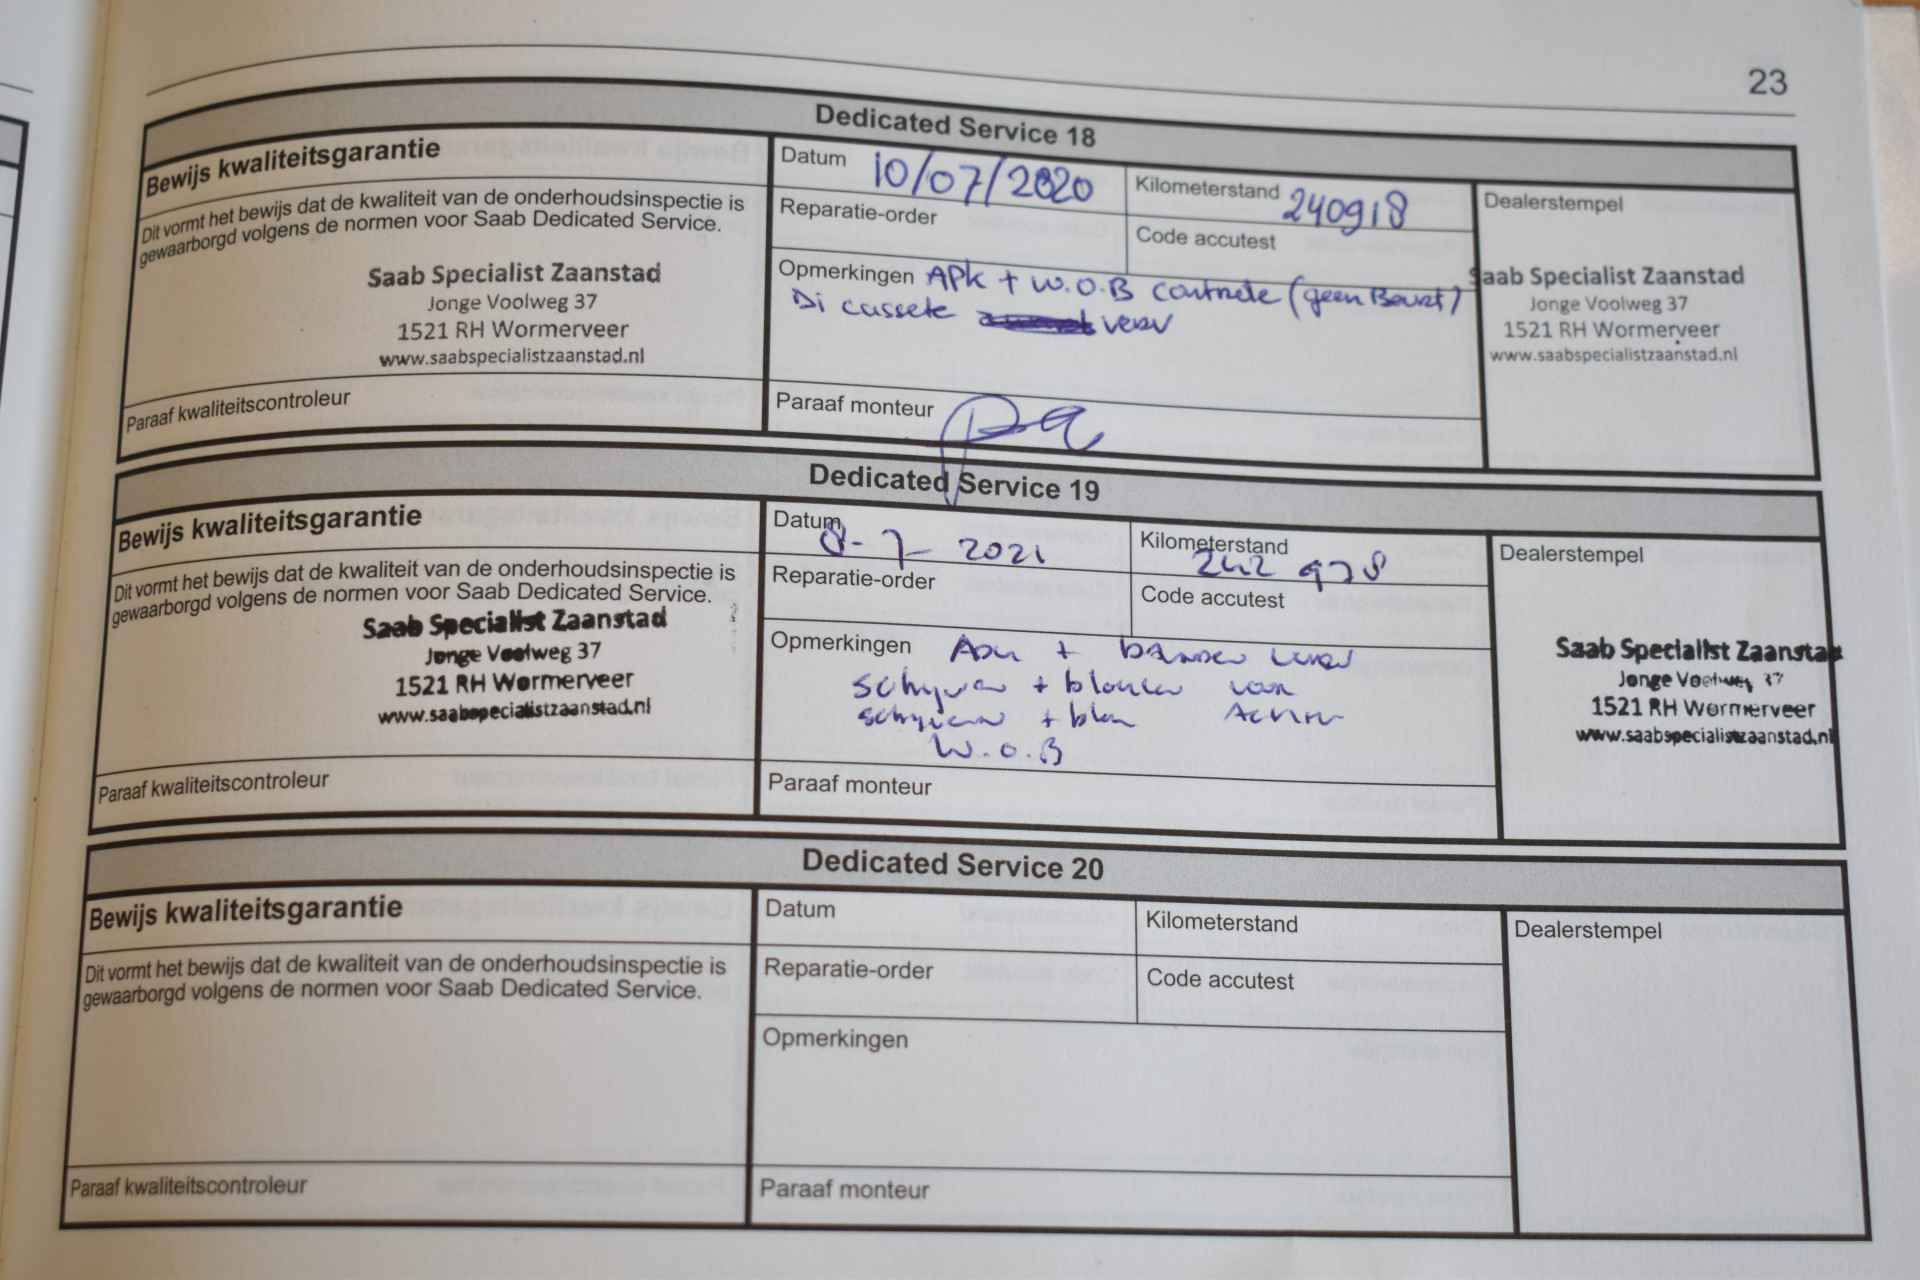 23
Dedicated Service 18
Bewijs kwaliteitsgarantie
Dit vormt het bewijs dat de kwaliteit van de onderhoudsinspectie is
gewaarborgd volgens de normen voor Saab Dedicated Service.
Saab Specialist Zaanstad
Jonge Voolweg 37
1521 RH Wormerveer
www.saabspecialistzaanstad.nl
Paraaf kwaliteitscontroleur
Datum 10/07/2020
Kilometerstand 240918
Reparatie-order
Code accutest
Opmerkingen APK + W.O.B controle (geen Beurt)
Di cassete verv
Paraaf monteur
Dealerstempel
Saab Specialist Zaanstad
Jonge Voolweg 37
1521 RH Wormerveer
www.saabspecialistzaanstad.nl
Dedicated Service 19
Bewijs kwaliteitsgarantie
Dit vormt het bewijs dat de kwaliteit van de onderhoudsinspectie is
gewaarborgd volgens de normen voor Saab Dedicated Service.
Saab Specialist Zaanstad
Jonge Voolweg 37
1521 RH Wormerveer
www.saabspecialistzaanstad.nl
Paraaf kwaliteitscontroleur
Datum 8-7-2021
Kilometerstand 242 978
Reparatie-order
Code accutest
Opmerkingen + banden
schijven + blokken voor
schijven + blok Achter
W.O.B
Paraaf monteur
Dealerstempel
Saab Specialist Zaanstad
Jonge Voolweg 37
1521 RH Wormerveer
www.saabspecialistzaanstad.nl
Dedicated Service 20
Bewijs kwaliteitsgarantie
Dit vormt het bewijs dat de kwaliteit van de onderhoudsinspectie is
gewaarborgd volgens de normen voor Saab Dedicated Service.
Paraaf kwaliteitscontroleur
Datum
Kilometerstand
Reparatie-order
Code accutest
Opmerkingen
Paraaf monteur
Dealerstempel